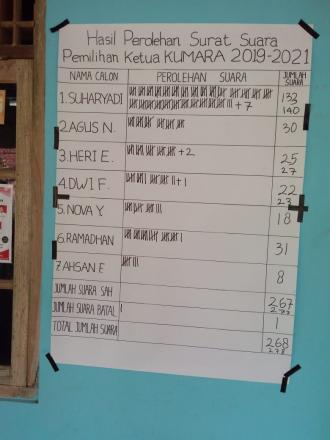 Hasil Perolehan Surat Suara
Pemilihan Ketua KUMARA 2019-2021
NAMA CALON PEROLEHAN SUARA JUMLAH SUARA
1. SUHARYADI + 7 133 140
2. AGUS N. 30
3. HERI E. +2 25 27
4. DWI F. +1 22 23
5. NOVA Y. 18
6. RAMADHAN 31
7 AHSAN E 8
JUMLAH SUARA SAH 267 277
JUMLAH SUARA BATAL 1
TOTAL JUMLAH SUARA 268 278